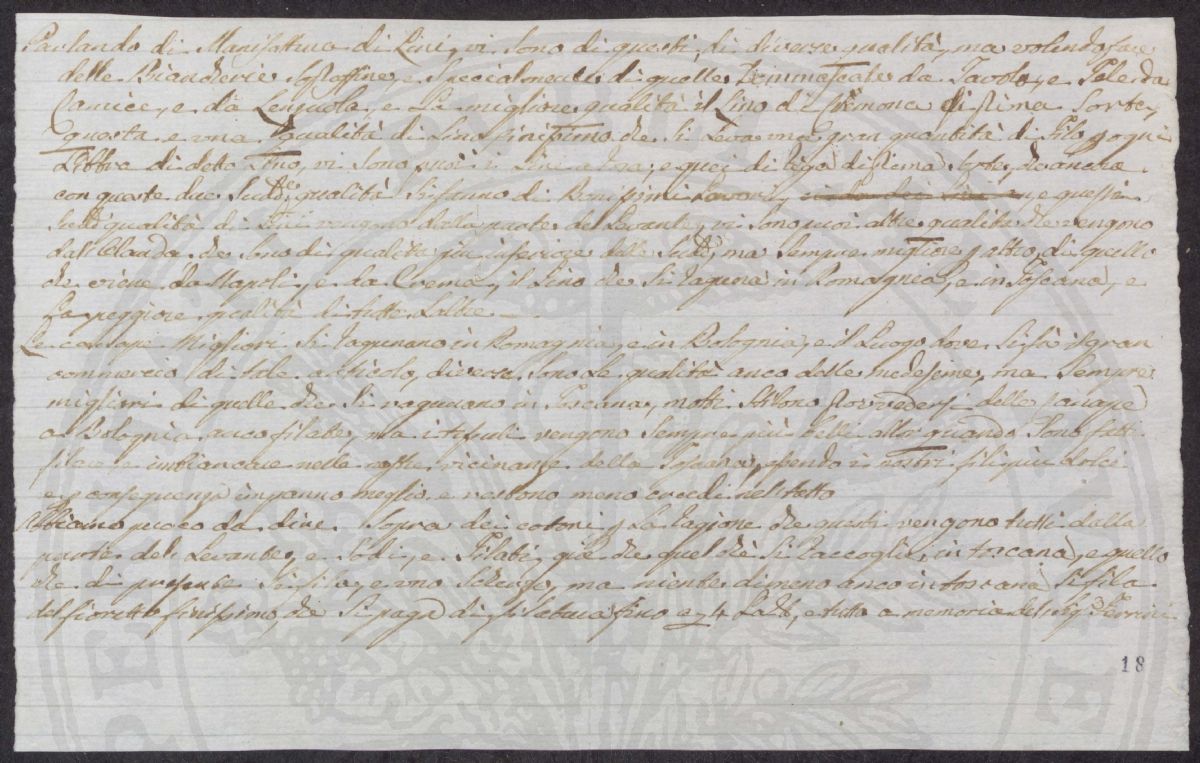 Parlando di Manifattura di Lini, vi sono di questi, di diverse qualità, ma volendo fare
delle Biancherie sopraffine, e specialmente di quelle Dommascate da Tavola, e Tele da
Camice, e da Lenzuola, e La migliore qualità il Lino di Cremona di Prima Sorte,
questa e una qualità di Lino finissimo che si leva una gran quantità di Filo p ogni
Libbra di detto Lino, vi sono poi i Lini e quei di Riga di Prima Sorte, che anche
con queste due Sudd.e qualità si fanno di Bonissimi Lavori, e queste
Sudd.e qualità di Lini vengono dalla parte del Levante, vi sono poi altre qualità che vengono
dall'Olanda che sono di qualità più inferiore delle Sudd.e, ma sempre migliore p altro di quello
che viene da Napoli, e da Crema, il Lino che si raguna in Romagnia, e in Toscana, e
La peggiore qualità di tutte L'altre —
Le canape migliori si ragunano in Romagnia, e in Bolognia, e il Luogo dove si fà il gran
commercio di tele a Ticolo, diverse sono le qualità anco delle medesime, ma sempre
migliori di quelle che si ragunano in Toscana, molti sogliono provvedersi delle canape
a Bolognia anco filate, ma i tessuti vengono sempre più belli allor quando sono fatti
filare e imbiancare nelle nostre vicinanze della Toscana, essendo i nostri fili più dolci
e p conseguenza impanno meglio e restono meno crudi nel tatto
Abbiamo poco da dire sopra dei cotoni p La ragione che questi vengono tutti dalla
parte del Levante, e sodi, e Filati, già che quel che si raccoglie in toscana, e quello
che di presente si fila, e uno scherzo, ma niente di meno anco in toscana si fila
del fioretto finissimo, che si paga di filatura fino e £ 4 La lb, e tutto a memoria del Sig.
18